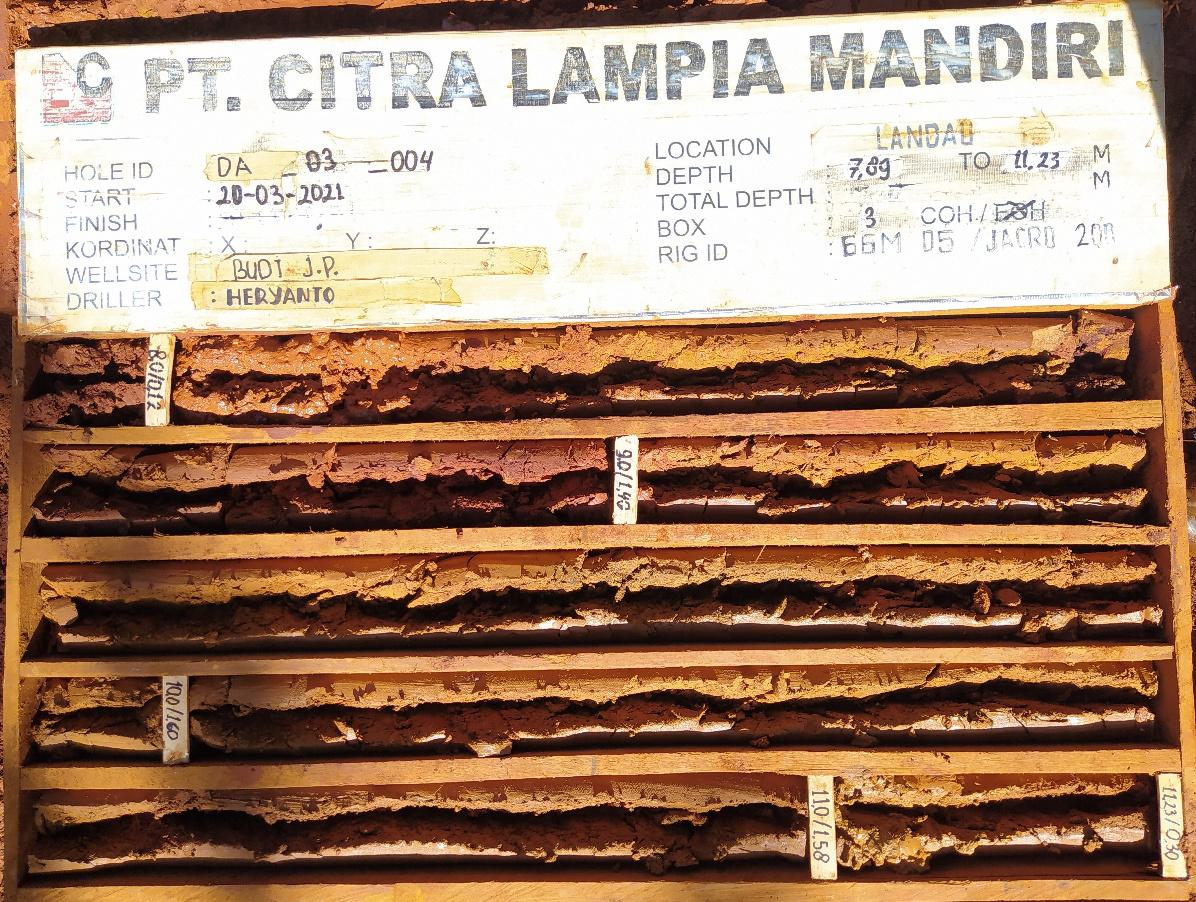 PT. CITRA LAMPIA MANDIRI
HOLE ID DA _ 03 _ 004
START : 20-03-2021
FINISH :
KORDINAT : X : Y : Z:
WELLSITE BUDI J.P.
DRILLER : HERYANTO
LOCATION LANDAU
DEPTH : 7,89 TO 11,23 M
TOTAL DEPTH : M
BOX : 3 COH./
RIG ID : GGM 05 /JACRO 200
9.0/1.40
10.0/1.60
11.0/1.58
11.23/0.30